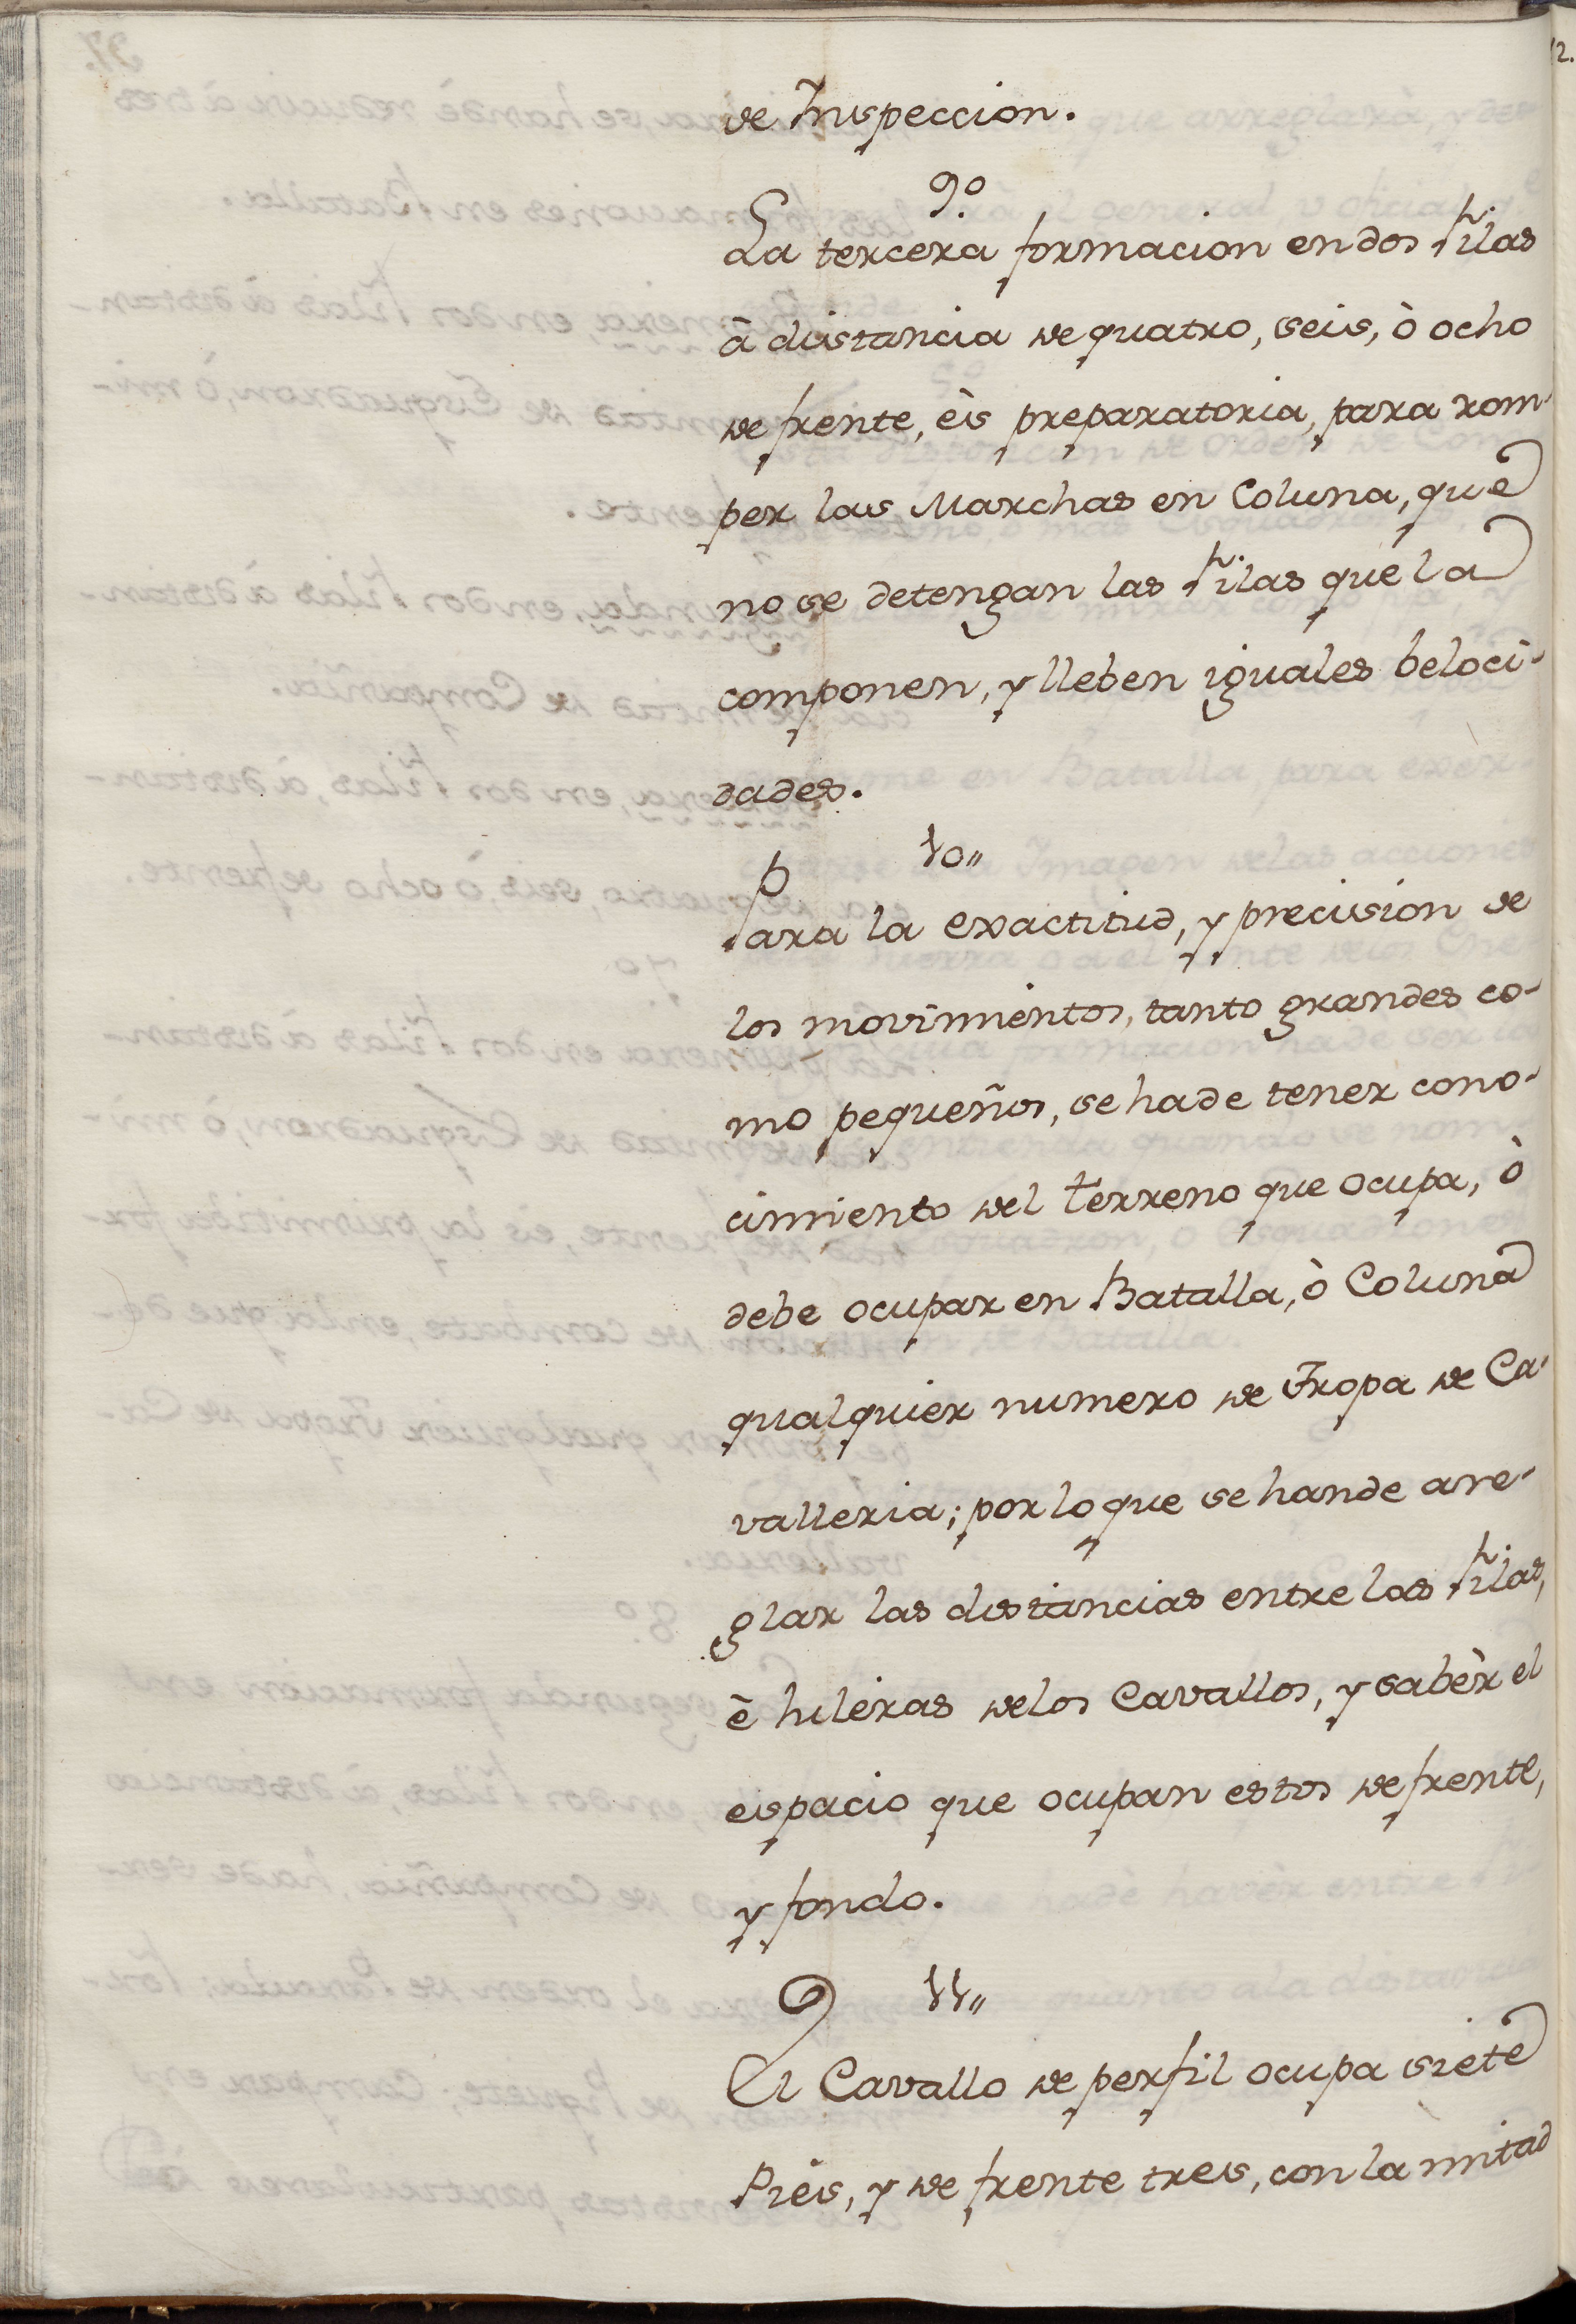 de Inspeccion.
9º
La tercera formacion en dos Filas
à distancia de quatro, seis, ò ocho
de frente, ès preparatoria, para rom-
per las Marchas en Coluna, que
no se detengan las Filas que la
componen, y lleben iguales beloci-
dades.
10,,
Para la exactitud, y precision de
los movimientos, tanto grandes co-
mo pequeños, se hade tener cono-
cimiento del terreno que ocupa, ò
debe ocupar en Batalla, ò Coluna
qualquier numero de Tropa de Ca-
valleria; por lo que se hande arre-
glar las distancias entre las Filas,
è hileras delos Cavallos, y sabèr el
espacio que ocupan estos de frente,
y fondo.
11,,
El Cavallo de perfil ocupa siete
Piès, y de frente tres, con la mitad